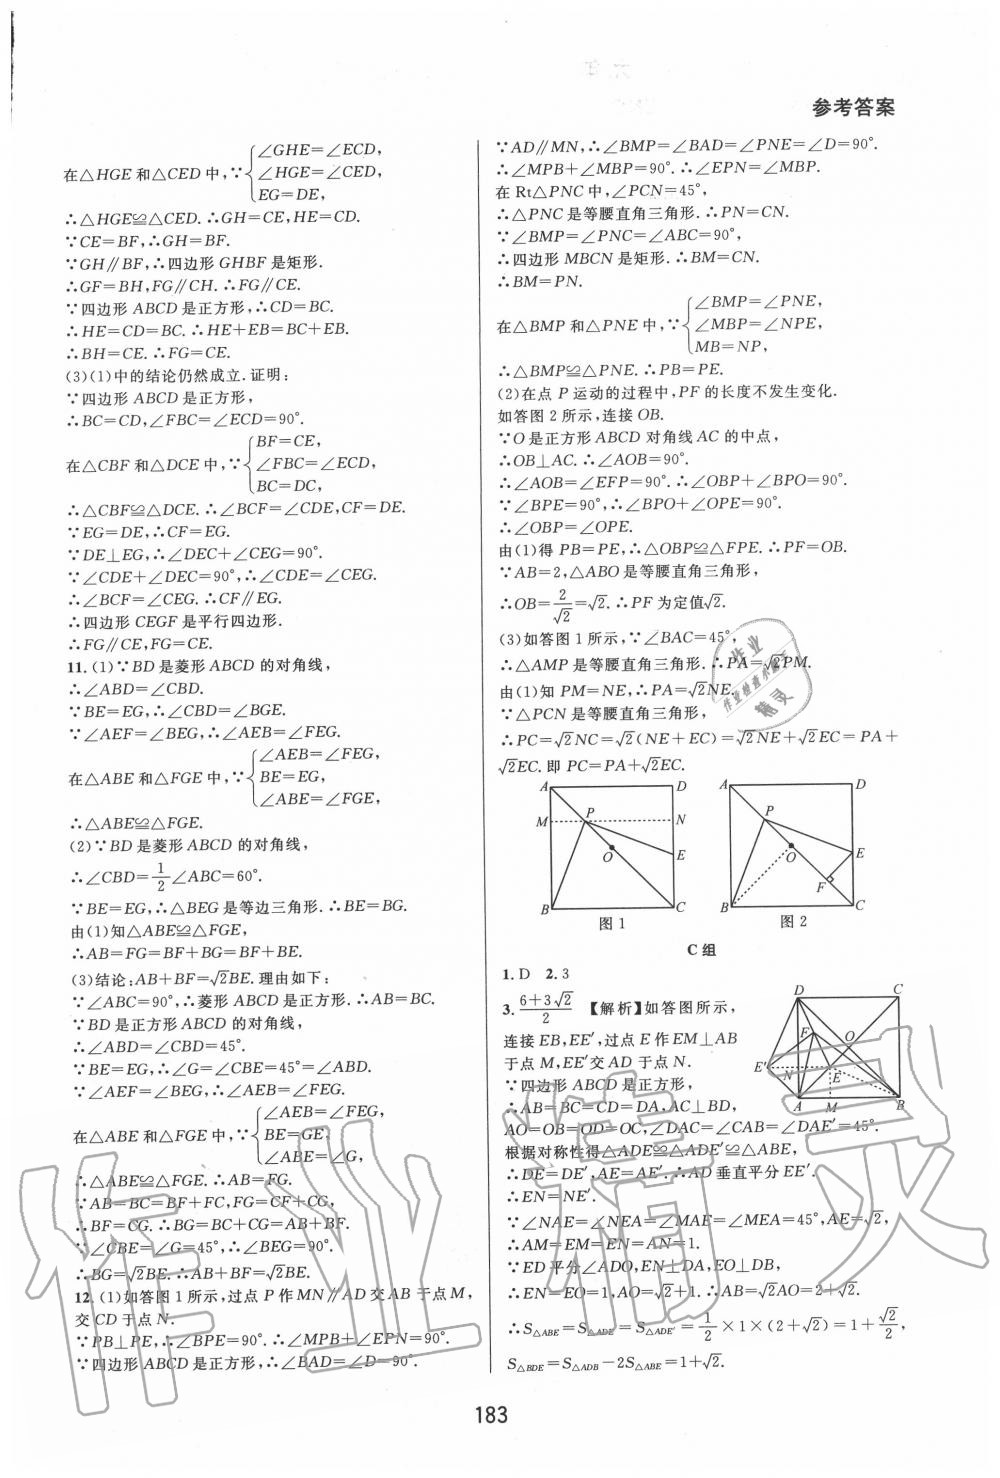 参考答案
在△HGE和△CED中,∵{∠GHE=∠ECD,
∠HGE=∠CED,
EG=DE,
∴△HGE≌△CED.∴GH=CE,HE=CD.
∵CE=BF,∴GH=BF.
∵GH∥BF,∴四边形GHBF是矩形.
∴GF=BH,FG∥CH.∴FG∥CE.
∵四边形ABCD是正方形,∴CD=BC.
∴HE=CD=BC.∴HE+EB=BC+EB.
∴BH=CE.∴FG=CE.
(3)(1)中的结论仍然成立.证明:
∵四边形ABCD是正方形,
∴BC=CD,∠FBC=∠ECD=90°.
在△CBF和△DCE中,∵{BF=CE,
∠FBC=∠ECD,
BC=DC,
∴△CBF≌△DCE.∴∠BCF=∠CDE,CF=DE.
∵EG=DE,∴CF=EG.
∵DE⊥EG,∴∠DEC+∠CEG=90°.
∵∠CDE+∠DEC=90°,∴∠CDE=∠CEG.
∴∠BCF=∠CEG.∴CF∥EG.
∴四边形CEGF是平行四边形.
∴FG∥CE,FG=CE.
11.(1)∵BD是菱形ABCD的对角线,
∴∠ABD=∠CBD.
∵BE=EG,∴∠CBD=∠BGE.
∵∠AEF=∠BEG,∴∠AEB=∠FEG.
在△ABE和△FGE中,∵{∠AEB=∠FEG,
BE=EG,
∠ABE=∠FGE,
∴△ABE≌△FGE.
(2)∵BD是菱形ABCD的对角线,
∴∠CBD=1/2∠ABC=60°.
∵BE=EG,∴△BEG是等边三角形.∴BE=BG.
由(1)知△ABE≌△FGE,
∴AB=FG=BF+BG=BF+BE.
(3)结论:AB+BF=√2BE.理由如下:
∵∠ABC=90°,∴菱形ABCD是正方形.∴AB=BC.
∵BD是正方形ABCD的对角线,
∴∠ABD=∠CBD=45°.
∵BE=EG,∴∠G=∠CBE=45°=∠ABD.
∵∠AEF=∠BEG,∴∠AEB=∠FEG.
在△ABE和△FGE中,∵{∠AEB=∠FEG,
BE=GE,
∠ABE=∠G,
∴△ABE≌△FGE.∴AB=FG.
∵AB=BC=BF+FC,FG=CF+CG,
∴BF=CG.∴BG=BC+CG=AB+BF.
∵∠CBE=∠G=45°,∴∠BEG=90°.
∴BG=√2BE.∴AB+BF=√2BE.
12.(1)如答图1所示,过点P作MN∥AD交AB于点M,
交CD于点N.
∵PB⊥PE,∴∠BPE=90°.∴∠MPB+∠EPN=90°.
∵四边形ABCD是正方形,∴∠BAD=∠D=90°.
∵AD∥MN,∴∠BMP=∠BAD=∠PNE=∠D=90°.
∴∠MPB+∠MBP=90°.∴∠EPN=∠MBP.
在Rt△PNC中,∠PCN=45°,
∴△PNC是等腰直角三角形.∴PN=CN.
∵∠BMP=∠PNC=∠ABC=90°,
∴四边形MBCN是矩形.∴BM=CN.
∴BM=PN.
在△BMP和△PNE中,∵{∠BMP=∠PNE,
∠MBP=∠NPE,
MB=NP,
∴△BMP≌△PNE.∴PB=PE.
(2)在点P运动的过程中,PF的长度不发生变化.
如答图2所示,连接OB.
∵O是正方形ABCD对角线AC的中点,
∴OB⊥AC.∴∠AOB=90°.
∴∠AOB=∠EFP=90°.∴∠OBP+∠BPO=90°.
∵∠BPE=90°,∴∠BPO+∠OPE=90°.
∴∠OBP=∠OPE.
由(1)得PB=PE,∴△OBP≌△FPE.∴PF=OB.
∵AB=2,△ABO是等腰直角三角形,
∴OB=2/√2=√2.∴PF为定值√2.
(3)如答图1所示,∵∠BAC=45°,
∴△AMP是等腰直角三角形.∴PA=√2PM.
由(1)知PM=NE,∴PA=√2NE.
∵△PCN是等腰直角三角形,
∴PC=√2NC=√2(NE+EC)=√2NE+√2EC=PA+
√2EC.即PC=PA+√2EC.
A D P M N O E B C
图1
A D P O E F B C
图2
C组
1.D 2.3
3.(6+3√2)/2 【解析】如答图所示,
连接EB,EE′,过点E作EM⊥AB
于点M,EE′交AD于点N.
∵四边形ABCD是正方形,
∴AB=BC=CD=DA,AC⊥BD,
AO=OB=OD=OC,∠DAC=∠CAB=∠DAE′=45°.
根据对称性得△ADE≌△ADE′≌△ABE,
∴DE=DE′,AE=AE′.∴AD垂直平分EE′.
∴EN=NE′.
∵∠NAE=∠NEA=∠MAE=∠MEA=45°,AE=√2,
∴AM=EM=EN=AN=1.
∵ED平分∠ADO,EN⊥DA,EO⊥DB,
∴EN=EO=1,AO=√2+1.∴AB=√2AO=2+√2.
∴S△ABE=S△ADE=S△ADE′=1/2×1×(2+√2)=1+√2/2,
S△BDE=S△ADB-2S△ABE=1+√2.
D C F O E′ N E A M B
作业
作业检查小帮手
精灵
作业精灵
183